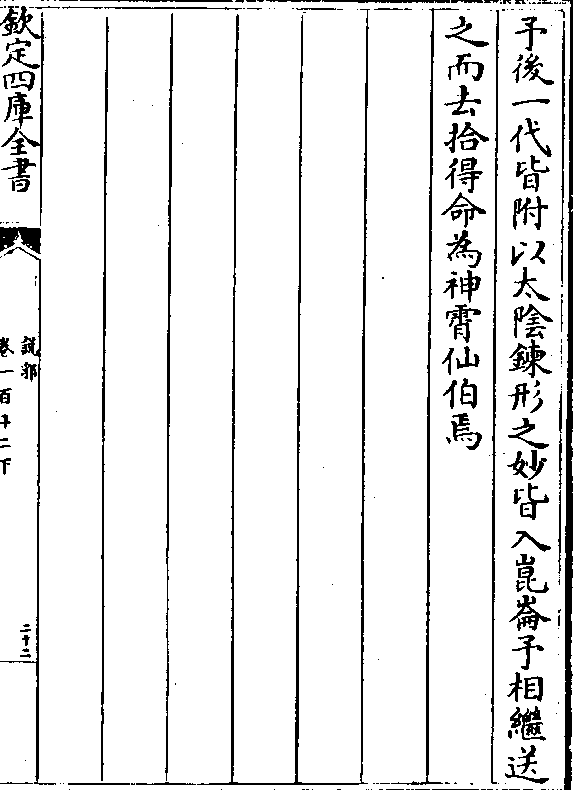 予後一代皆附以太陰鍊形之妙皆入崑崙予相繼送
之而去拾得命為神霄仙伯焉
欽定四庫全書
說郛
卷一百十二下
二十二